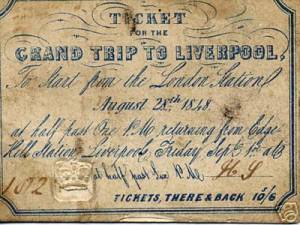 TICKET
FOR THE
GRAND TRIP TO LIVERPOOL,
To Start from the London Station
August 28th 1848.
at half past One P.M. returning from Edge-
Hill Station, Liverpool, Friday Sept 1st at
at half past Six P.M.
TICKETS, THERE & BACK 10/6